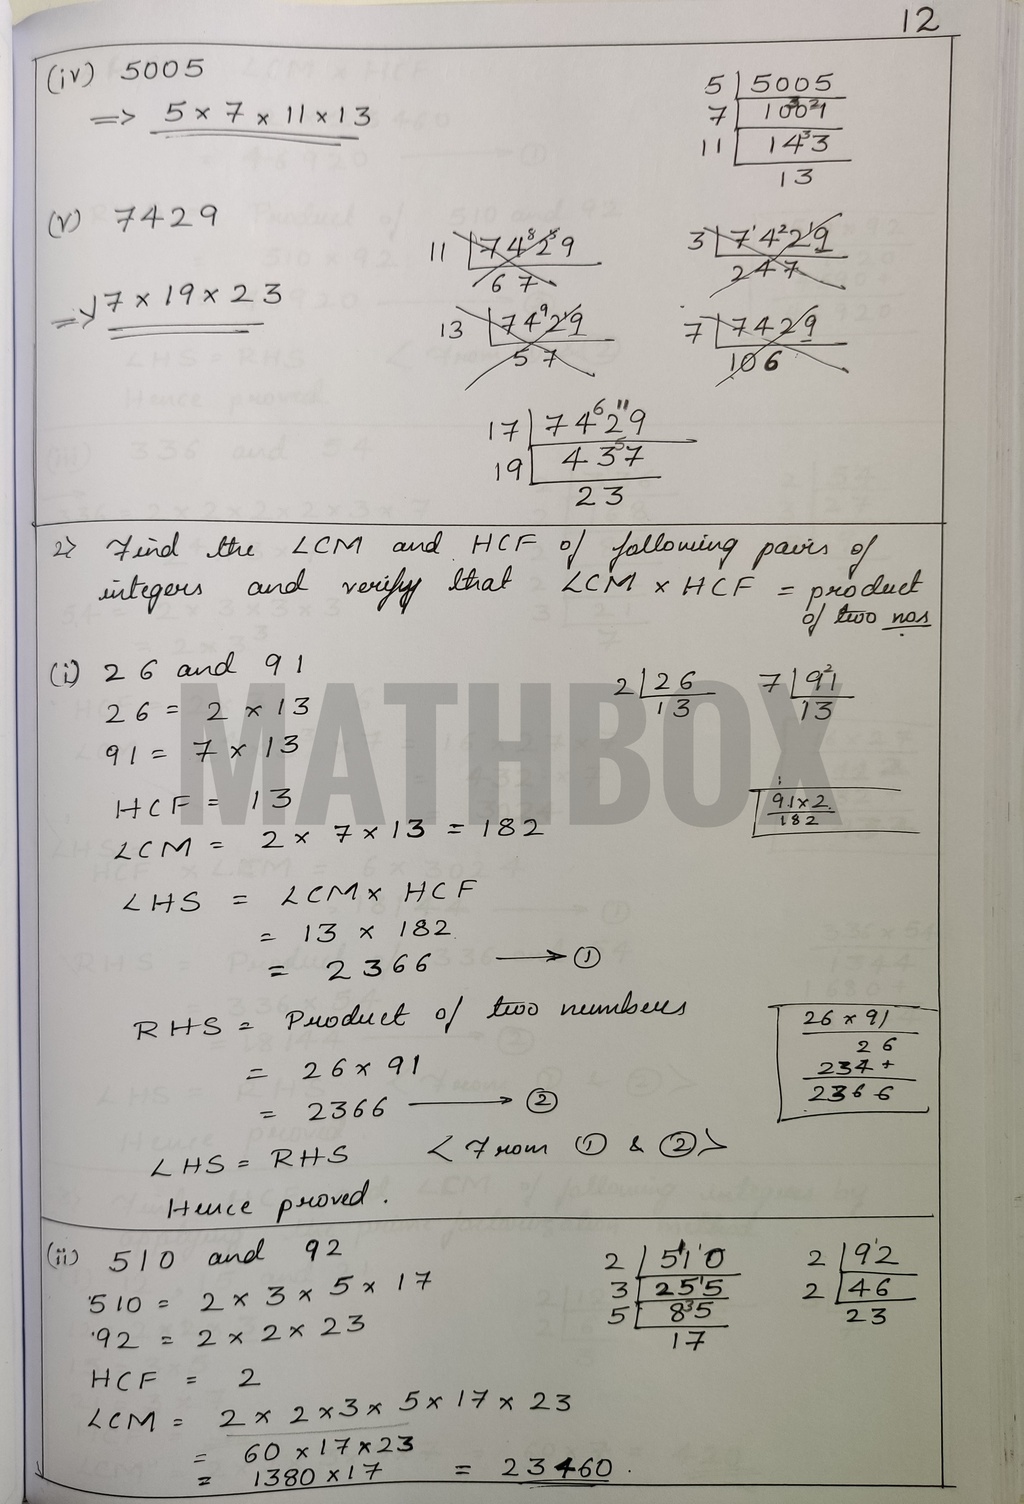 12
(iv) 5005
=> 5 x 7 x 11 x 13
5 | 5005
7 | 1001
11 | 143
13
(v) 7429
=> 17 x 19 x 23
11 | 7429
67
3 | 7429
247
13 | 7429
57
7 | 7429
106
17 | 7429
19 | 437
23
2> Find the LCM and HCF of following pairs of
integers and verify that LCM x HCF = product
of two nos
(i) 26 and 91
26 = 2 x 13
91 = 7 x 13
2 | 26
13
7 | 91
13
HCF = 13
LCM = 2 x 7 x 13 = 182
91 x 2
182
LHS = LCM x HCF
= 13 x 182
= 2366 → ①
RHS = Product of two numbers
= 26 x 91
= 2366 → ②
26 x 91
26
234 +
2366
LHS = RHS < From ① & ② >
Hence proved.
MATHBOX
(ii) 510 and 92
510 = 2 x 3 x 5 x 17
92 = 2 x 2 x 23
2 | 510
3 | 255
5 | 85
17
2 | 92
2 | 46
23
HCF = 2
LCM = 2 x 2 x 3 x 5 x 17 x 23
= 60 x 17 x 23
= 1380 x 17 = 23460.